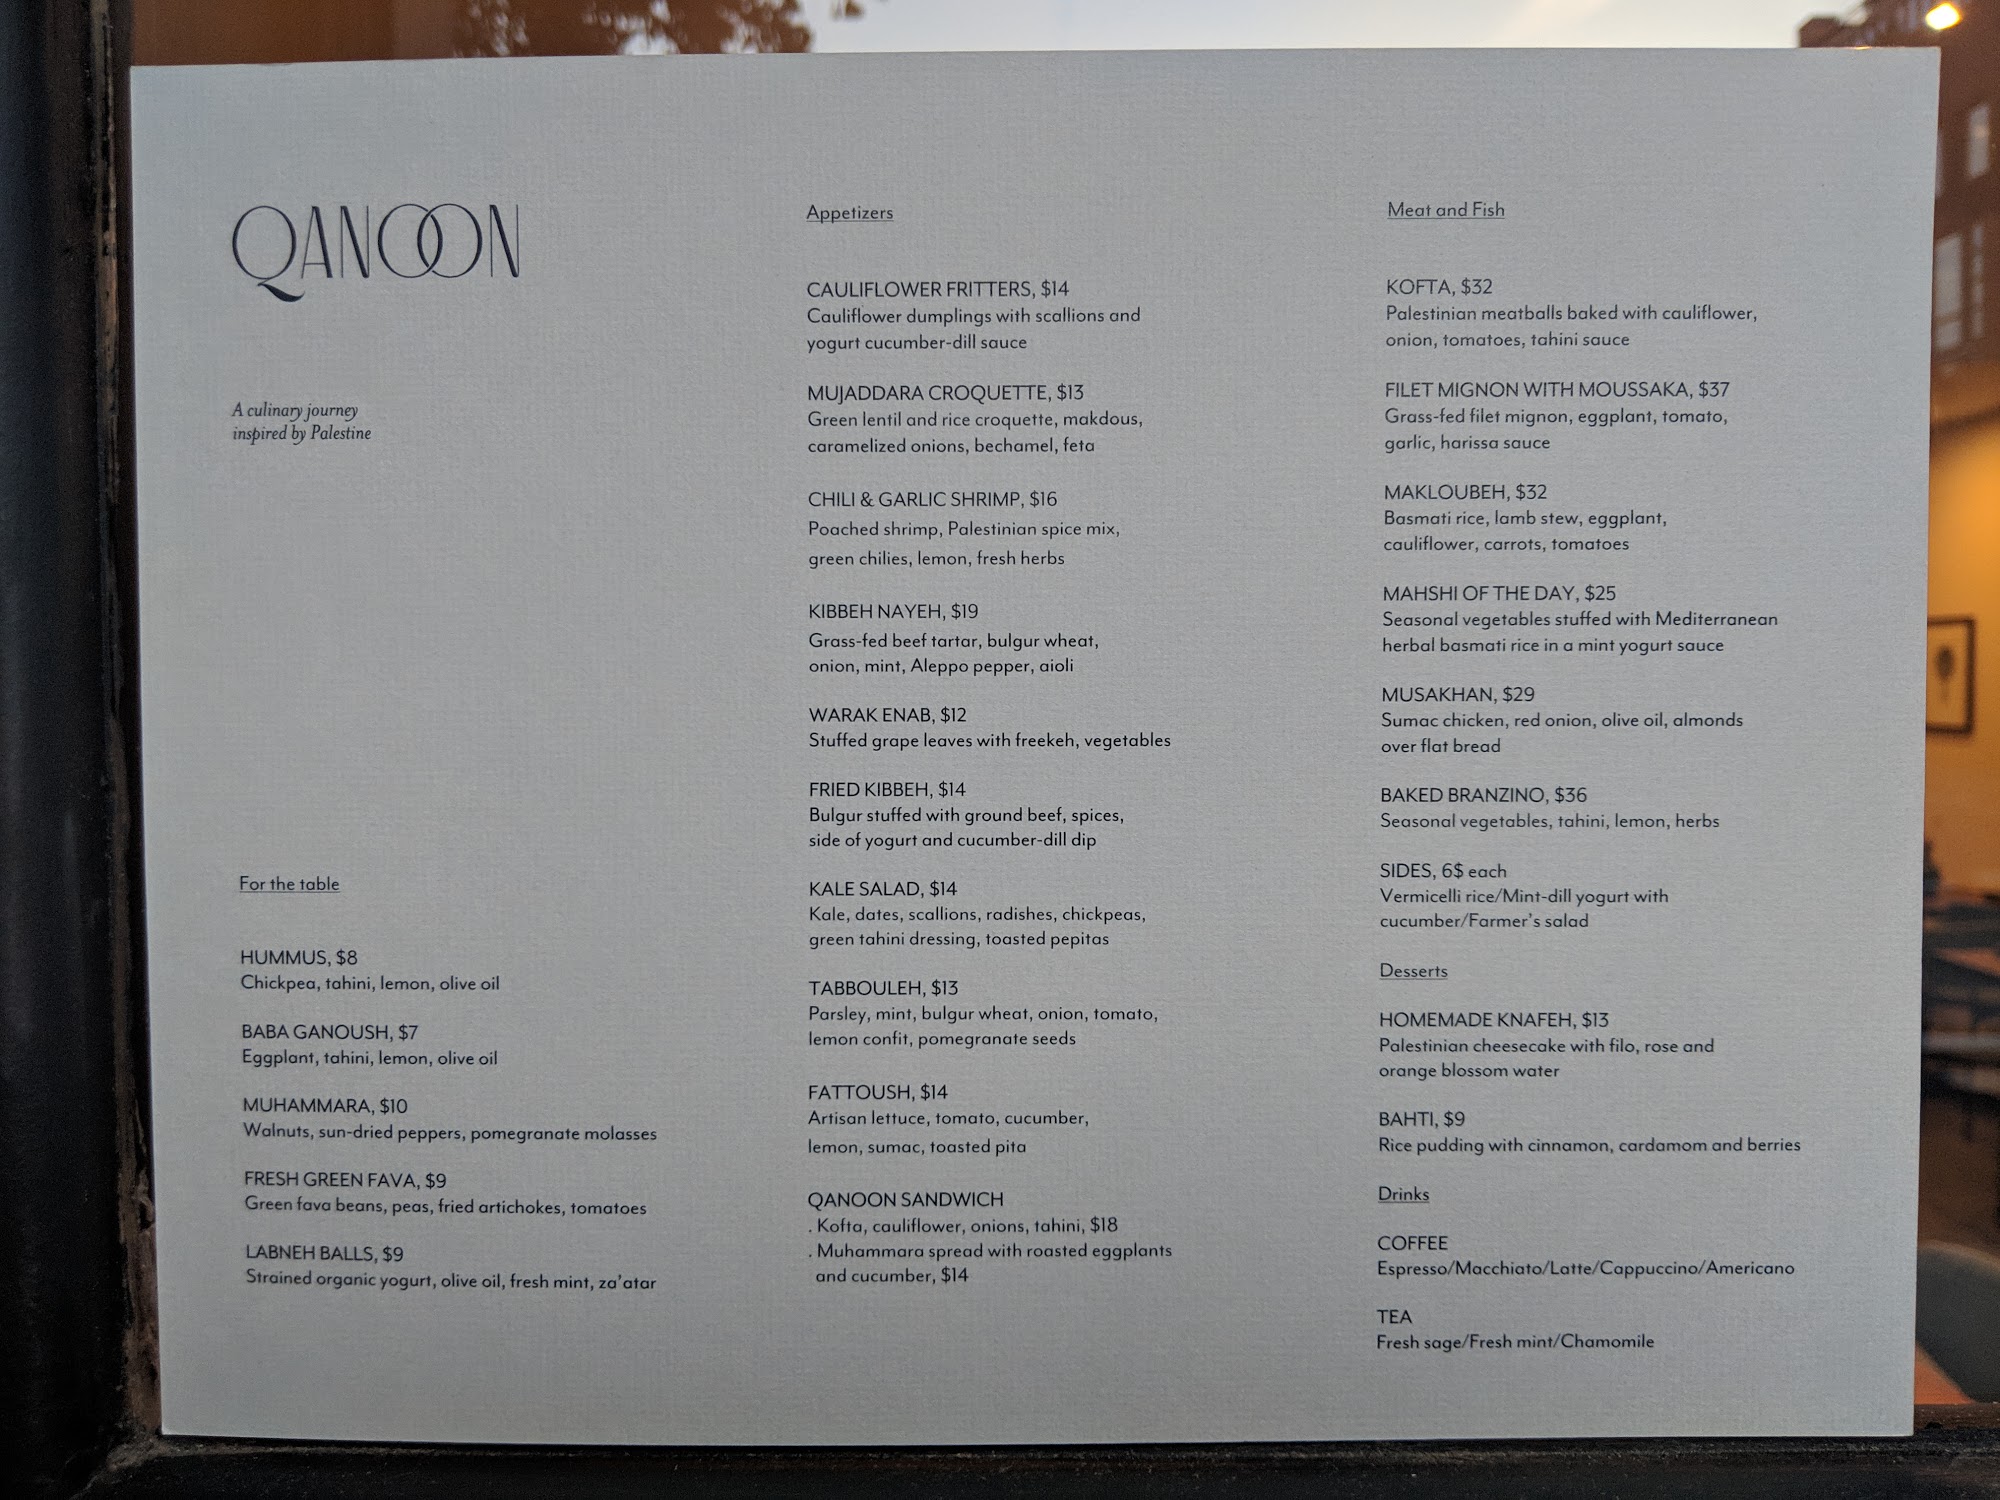 QANOON
A culinary journey
inspired by Palestine
For the table
HUMMUS, $8
Chickpea, tahini, lemon, olive oil
BABA GANOUSH, $7
Eggplant, tahini, lemon, olive oil
MUHAMMARA, $10
Walnuts, sun-dried peppers, pomegranate molasses
FRESH GREEN FAVA, $9
Green fava beans, peas, fried artichokes, tomatoes
LABNEH BALLS, $9
Strained organic yogurt, olive oil, fresh mint, za'atar
Appetizers
CAULIFLOWER FRITTERS, $14
Cauliflower dumplings with scallions and
yogurt cucumber-dill sauce
MUJADDARA CROQUETTE, $13
Green lentil and rice croquette, makdous,
caramelized onions, bechamel, feta
CHILI & GARLIC SHRIMP, $16
Poached shrimp, Palestinian spice mix,
green chilies, lemon, fresh herbs
KIBBEH NAYEH, $19
Grass-fed beef tartar, bulgur wheat,
onion, mint, Aleppo pepper, aioli
WARAK ENAB, $12
Stuffed grape leaves with freekeh, vegetables
FRIED KIBBEH, $14
Bulgur stuffed with ground beef, spices,
side of yogurt and cucumber-dill dip
KALE SALAD, $14
Kale, dates, scallions, radishes, chickpeas,
green tahini dressing, toasted pepitas
TABBOULEH, $13
Parsley, mint, bulgur wheat, onion, tomato,
lemon confit, pomegranate seeds
FATTOUSH, $14
Artisan lettuce, tomato, cucumber,
lemon, sumac, toasted pita
QANOON SANDWICH
. Kofta, cauliflower, onions, tahini, $18
. Muhammara spread with roasted eggplants
and cucumber, $14
Meat and Fish
KOFTA, $32
Palestinian meatballs baked with cauliflower,
onion, tomatoes, tahini sauce
FILET MIGNON WITH MOUSSAKA, $37
Grass-fed filet mignon, eggplant, tomato,
garlic, harissa sauce
MAKLOUBEH, $32
Basmati rice, lamb stew, eggplant,
cauliflower, carrots, tomatoes
MAHSHI OF THE DAY, $25
Seasonal vegetables stuffed with Mediterranean
herbal basmati rice in a mint yogurt sauce
MUSAKHAN, $29
Sumac chicken, red onion, olive oil, almonds
over flat bread
BAKED BRANZINO, $36
Seasonal vegetables, tahini, lemon, herbs
SIDES, 6$ each
Vermicelli rice/Mint-dill yogurt with
cucumber/Farmer's salad
Desserts
HOMEMADE KNAFEH, $13
Palestinian cheesecake with filo, rose and
orange blossom water
BAHTI, $9
Rice pudding with cinnamon, cardamom and berries
Drinks
COFFEE
Espresso/Macchiato/Latte/Cappuccino/Americano
TEA
Fresh sage/Fresh mint/Chamomile